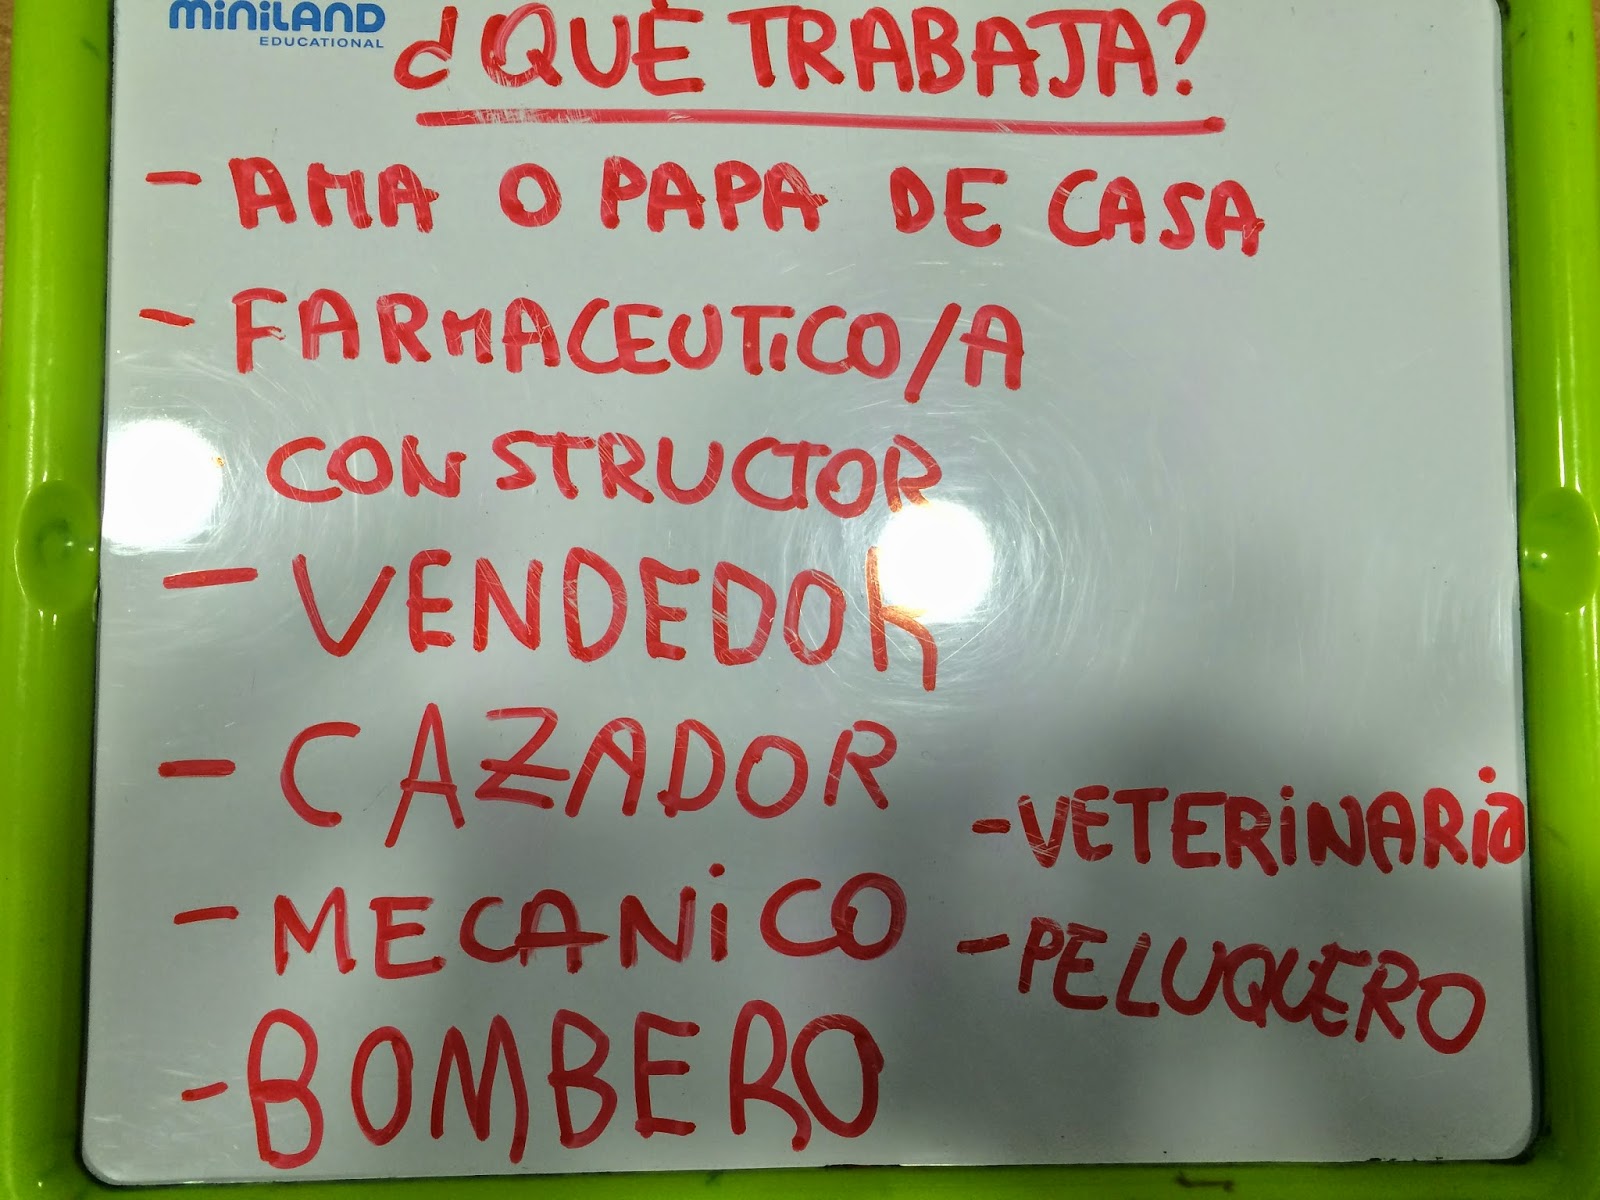 miniLAND
EDUCATIONAL
¿QUÉ TRABAJA?
- AMA O PAPA DE CASA
- FARMACEUTiCO/A
CONSTRUCTOR
- VENDEDOR
- CAZADOR
- MECANiCO
- BOMBERO
- VETERiNARia
- PELUQUERO